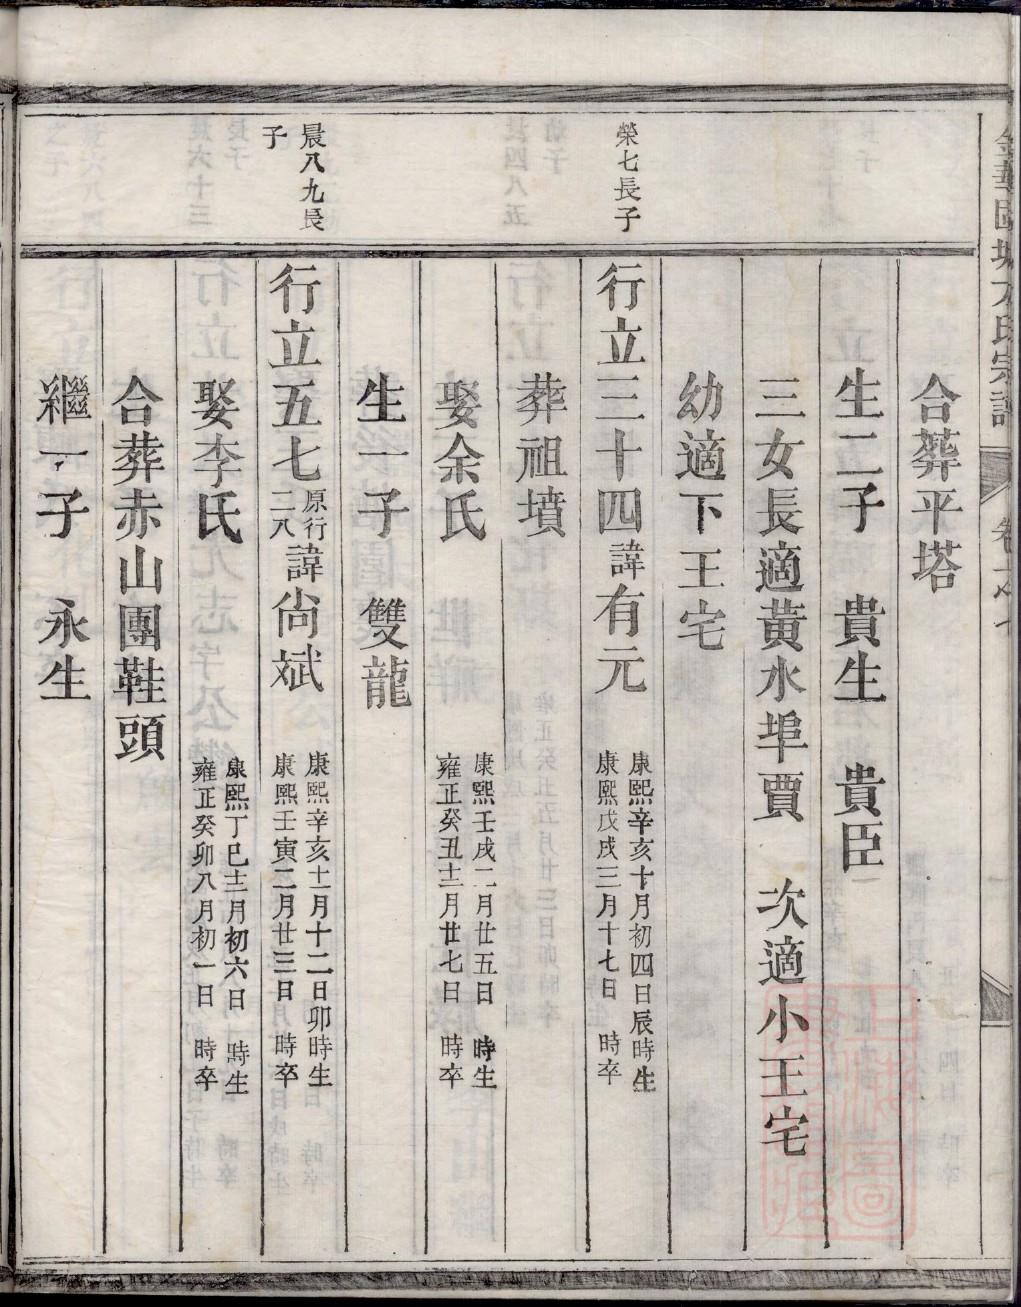 合葬平塔
生二子　貴生　貴臣
三女長適黃水埠賈　次適小王宅
幼適下王宅
榮七長子
行立三十四諱有元
康熙辛亥十月初四日辰時生
康熙戊戌三月十七日　時卒
葬祖墳
娶余氏
康熙壬戌二月廿五日　時生
雍正癸丑十二月廿七日　時卒
生一子　雙龍
晨八九長
子
行立五七
原行
二八
諱尙斌
康熙辛亥十一月十二日卯時生
康熙壬寅二月廿三日　時卒
娶李氏
康熙丁巳十二月初六日　時生
雍正癸卯八月初一日　時卒
合葬赤山團鞋頭
繼一子　永生